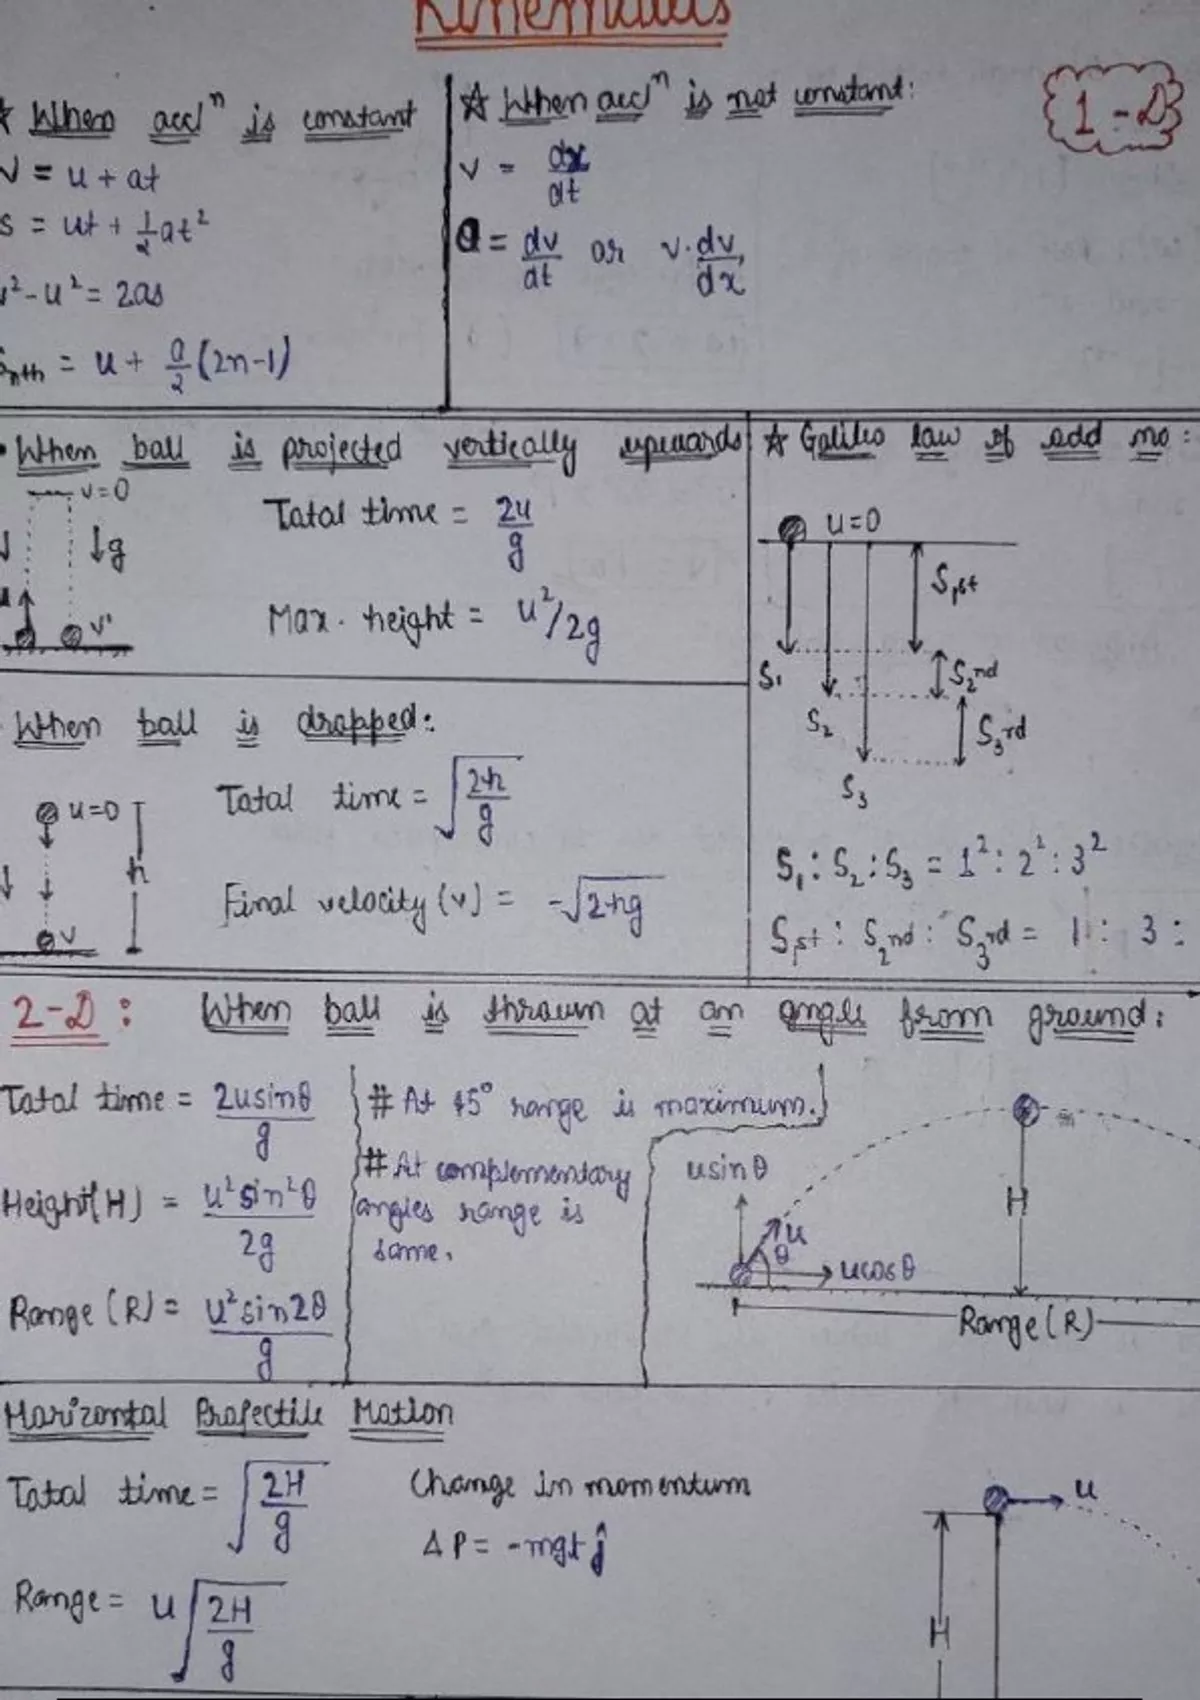 Kinematics
1-D
☆ When accⁿ is constant
V = u + at
S = ut + 1/2 at²
v² - u² = 2as
Snth = u + a/2 (2n-1)
☆ When accⁿ is not constant:
v = dx/dt
a = dv/dt or v.dv/dx
• When ball is projected vertically upwards
v=0
↓g
u
v'
Total time = 2u/g
Max. height = u²/2g
☆ Galileo law of odd no:
u=0
S1st
S1
S2nd
S2
S3rd
S3
S1 : S2 : S3 = 1² : 2² : 3²
S1st : S2nd : S3rd = 1 : 3 :
When ball is dropped:
u=0
h
v
Total time = √2h/g
Final velocity (v) = -√2hg
2-D: When ball is thrown at an angle from ground:
Total time = 2usinθ/g
Height(H) = u²sin²θ/2g
Range (R) = u²sin2θ/g
# At 45° range is maximum.
# At complementary
angles range is
same.
usinθ
u
θ
ucosθ
H
Range (R)
Horizontal Projectile Motion
Total time = √2H/g
Range = u√2H/g
Change in momentum
ΔP = -mgt ĵ
u
H